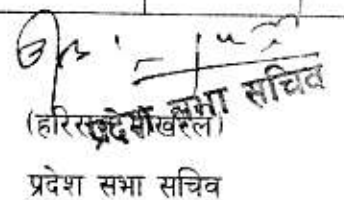 प्रदेश सभा सचिव
(हरिर खरेल)
प्रदेश सभा सचिव